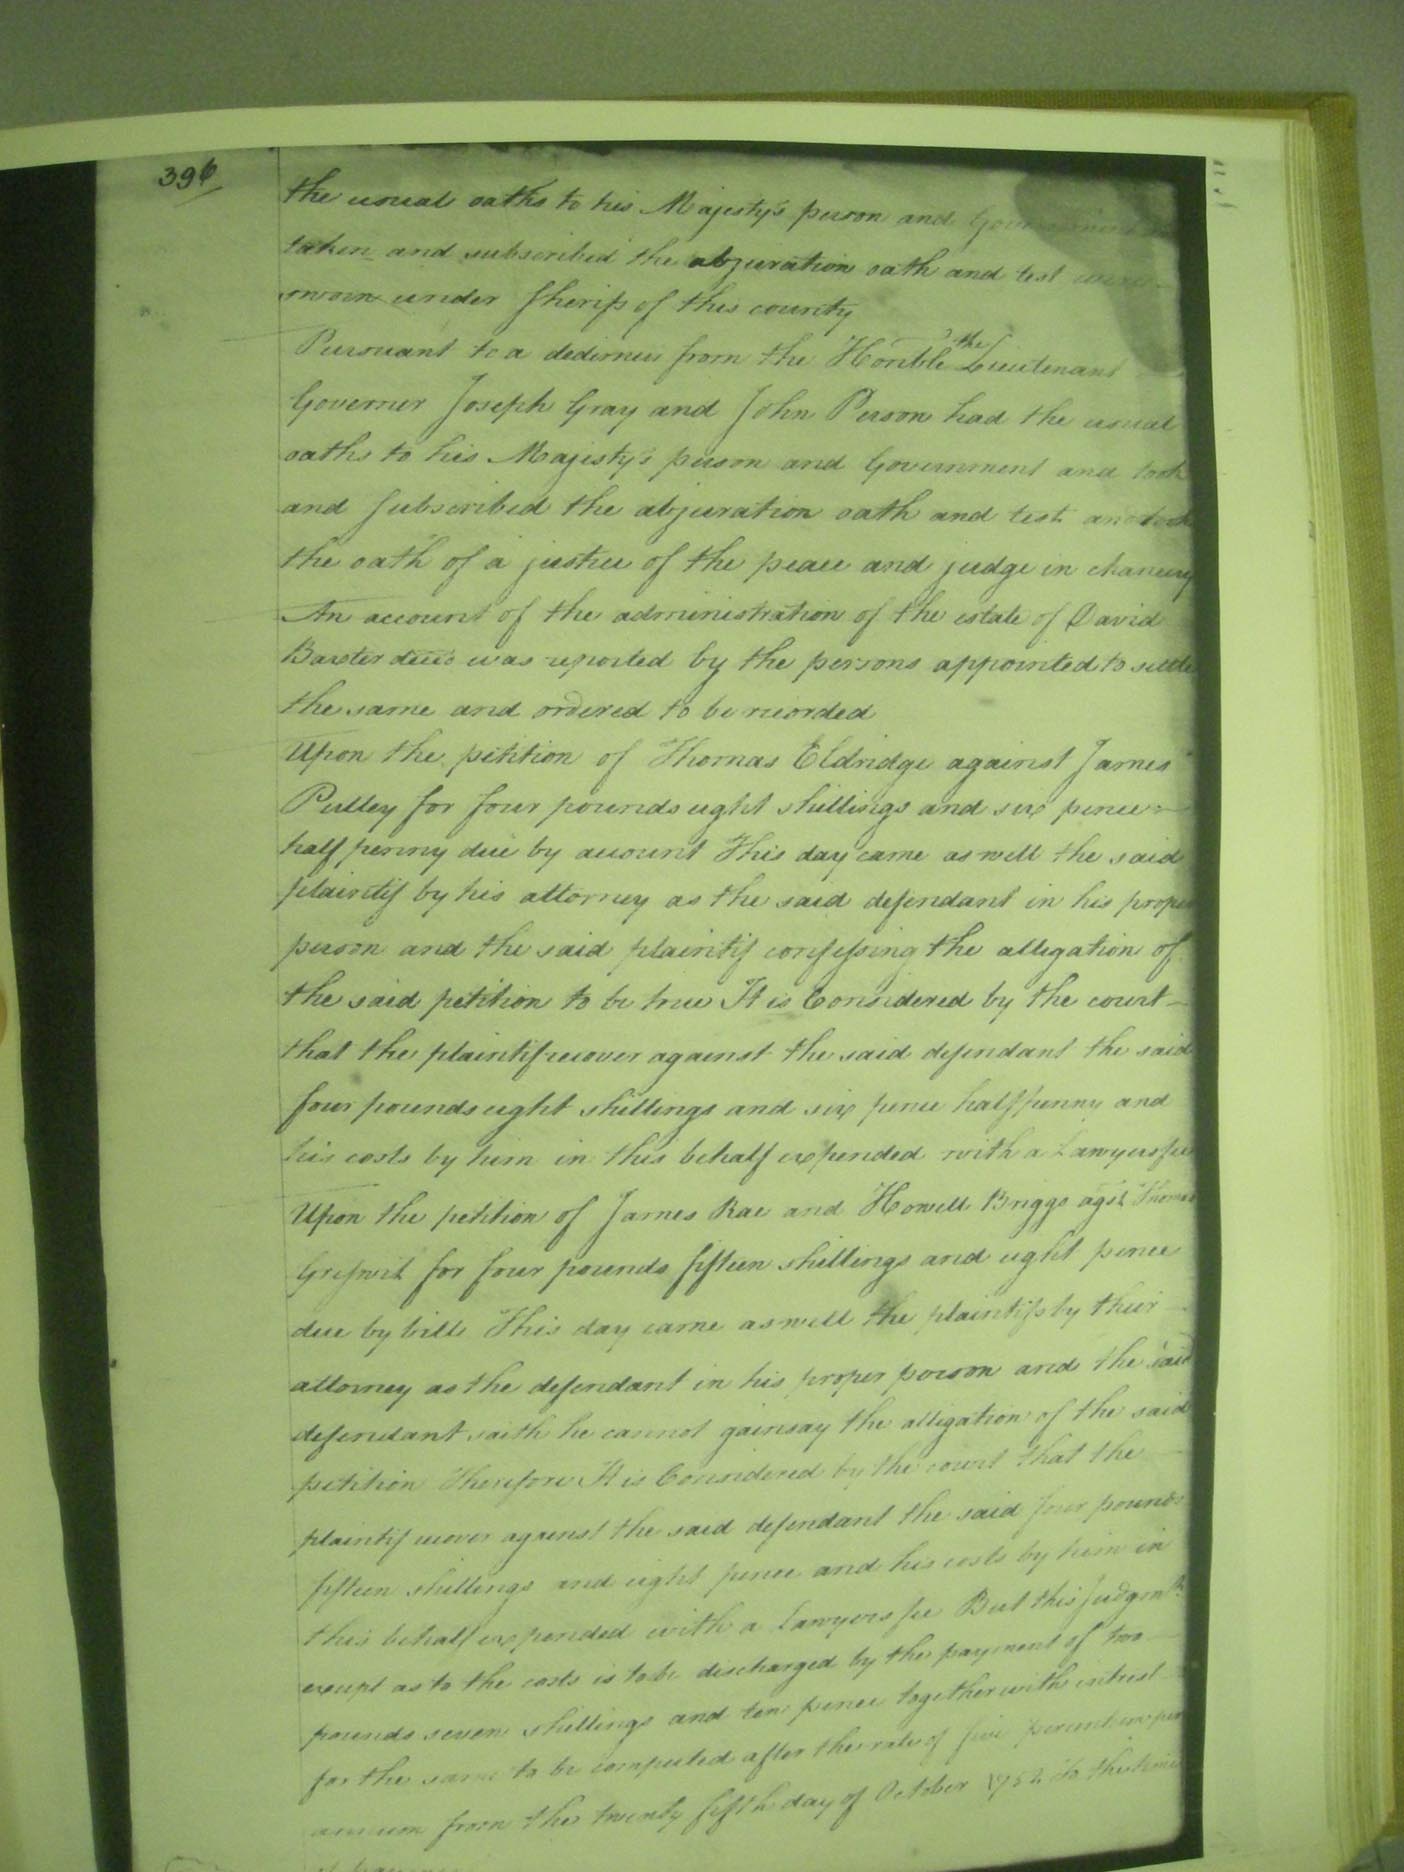 396
the usual oaths to his Majesty's person and Government
taken and subscribed the abjuration oath and test
sworn under Sherif of this county
Pursuant to a dedimus from the Honble the Lieutenant
Governer Joseph Gray and John Person had the usual
oaths to his Majesty's person and Government and took
and Subscribed the abjuration oath and test and took
the oath of a justice of the peace and judge in chancery
An account of the administration of the estate of David
Baxter decd was reported by the persons appointed to settle
the same and ordered to be recorded
Upon the petition of Thomas Eldridge against James
Pulley for four pounds eight shillings and six pence
half penny due by account This day came as well the said
plaintif by his attorney as the said defendant in his proper
person and the said plaintif confessing the alligation of
the said petition to be true It is Considered by the court
that the plaintif recover against the said defendant the said
four pounds eight shillings and six pence half penny and
his costs by him in this behalf expended with a Lawyers fee
Upon the petition of James Rae and Howell Briggs agst Thomas
for four pounds fifteen shillings and eight pence
due by bill This day came as well the plaintifs by their
attorney as the defendant in his proper person and the said
defendant saith he cannot gainsay the alligation of the said
petition Therefore It is Considered by the court that the
plaintif recover against the said defendant the said four pounds
fifteen shillings and eight pence and his costs by him in
this behalf expended with a Lawyers fee But this Judgmt
except as to the costs is to be discharged by the payment of two
pounds seven shillings and ten pence together with intrest
for the same to be computed after the rate of five percentum per
annum from the twenty fifth day of October 1752 to the time